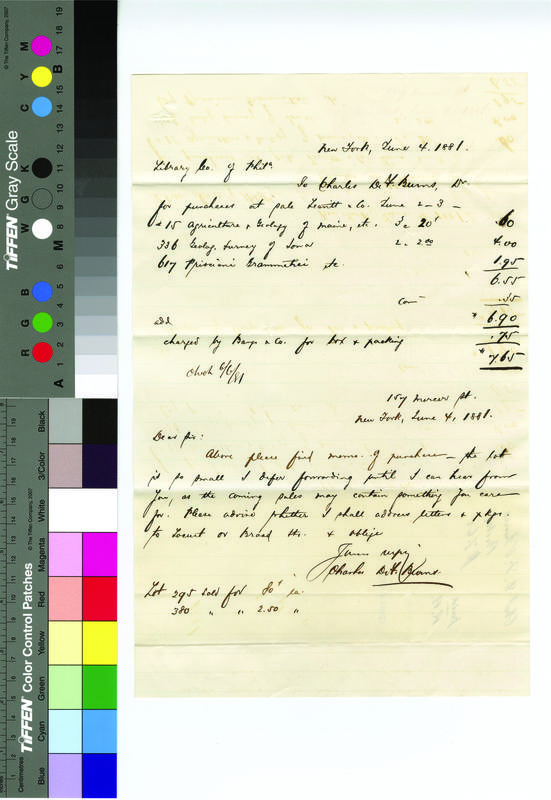 New York, June 4. 1881.
Library Co. of Phila
To Charles De F. Burns, Dr
for purchases at sale Leavitt & Co. June 2-3-
215 Agriculture & Geology of Maine, etc. 3 @ 20¢ 60
336 Geolog. Survey of Iowa 2 - 2.00 4.00
617 Prisciani Grammatici etc. 1.95
6.55
Com .35
6.90
add
charged by Bangs & Co. for box & packing .75
7.65
Check 6/6/81
157 Mercer St.
New York, June 4, 1881.
Dear Sir:
Above please find memo. of purchase — the lot
is so small I defer forwarding until I can hear from
you, as the coming sales may contain something you care
for. Please advise whether I shall address letters & pkgs.
to Locust or Broad Sts. & oblige
Yours respy
Charles De F. Burns
Lot 295 sold for 80¢ ea.
380 " " 2.50 "
TIFFEN Gray Scale
© The Tiffen Company, 2007
R G B W G K C Y M
A 1 2 3 4 5 6 M 8 9 10 11 12 13 14 15 B 17 18 19
TIFFEN Color Control Patches
© The Tiffen Company, 2007
Centimetres
Blue Cyan Green Yellow Red Magenta White 3/Color Black